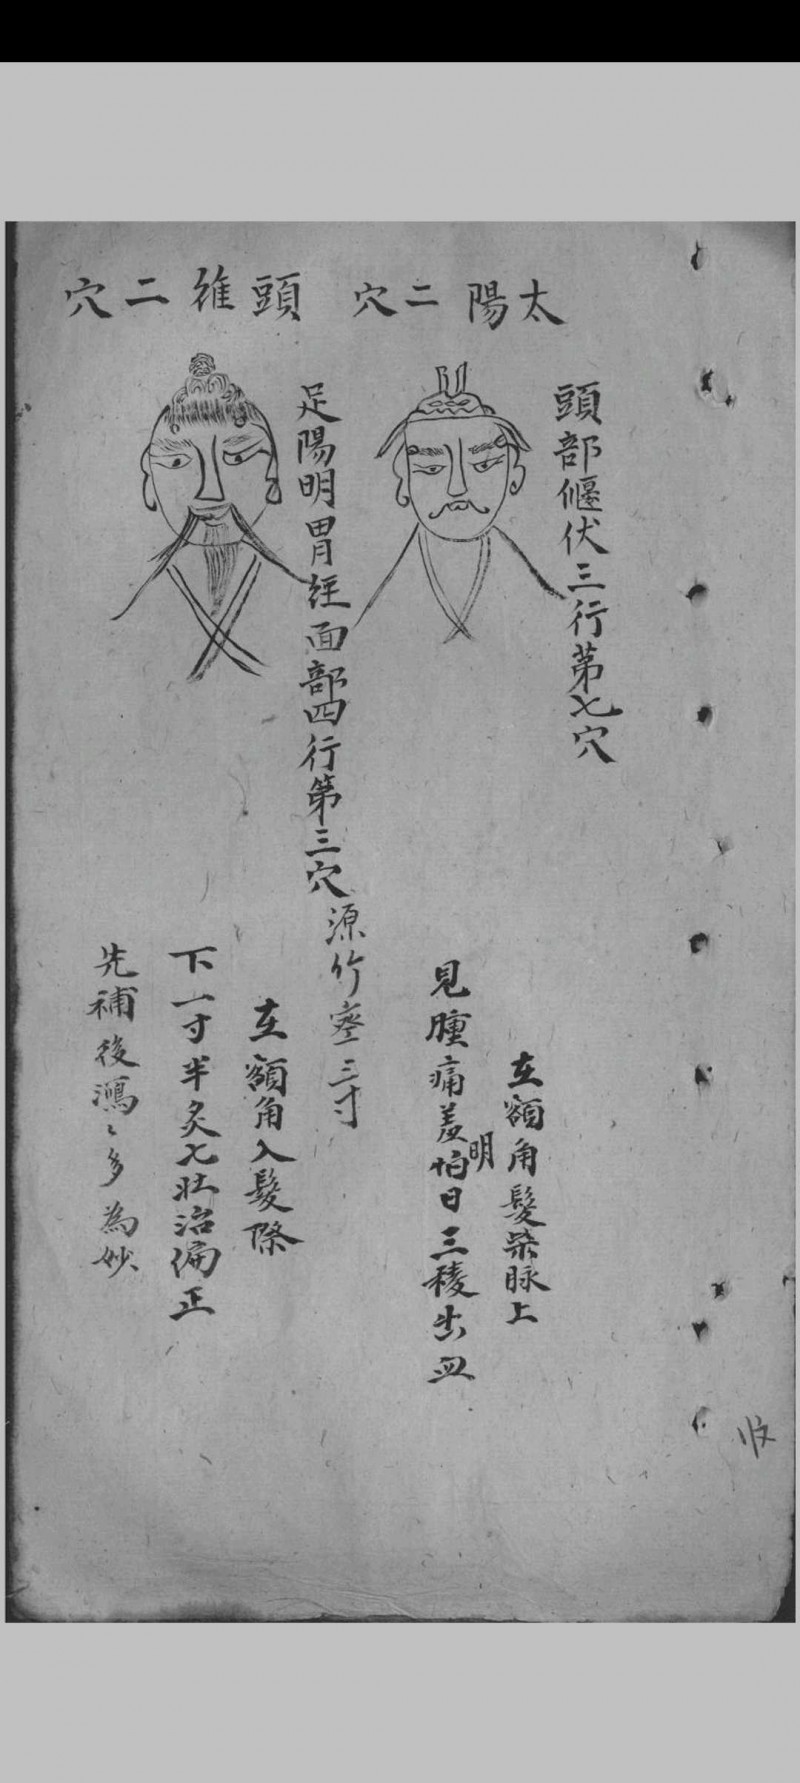 太陽二穴
頭部偃伏三行第七穴
在額角髮際脉上
見腫痛羞怕明日三稜出血
頭維二穴
足陽明胃経面部四行第三穴 源竹空三寸
在額角入髮際
下一寸半灸七壯治偏正
先補後瀉〻多為妙
收